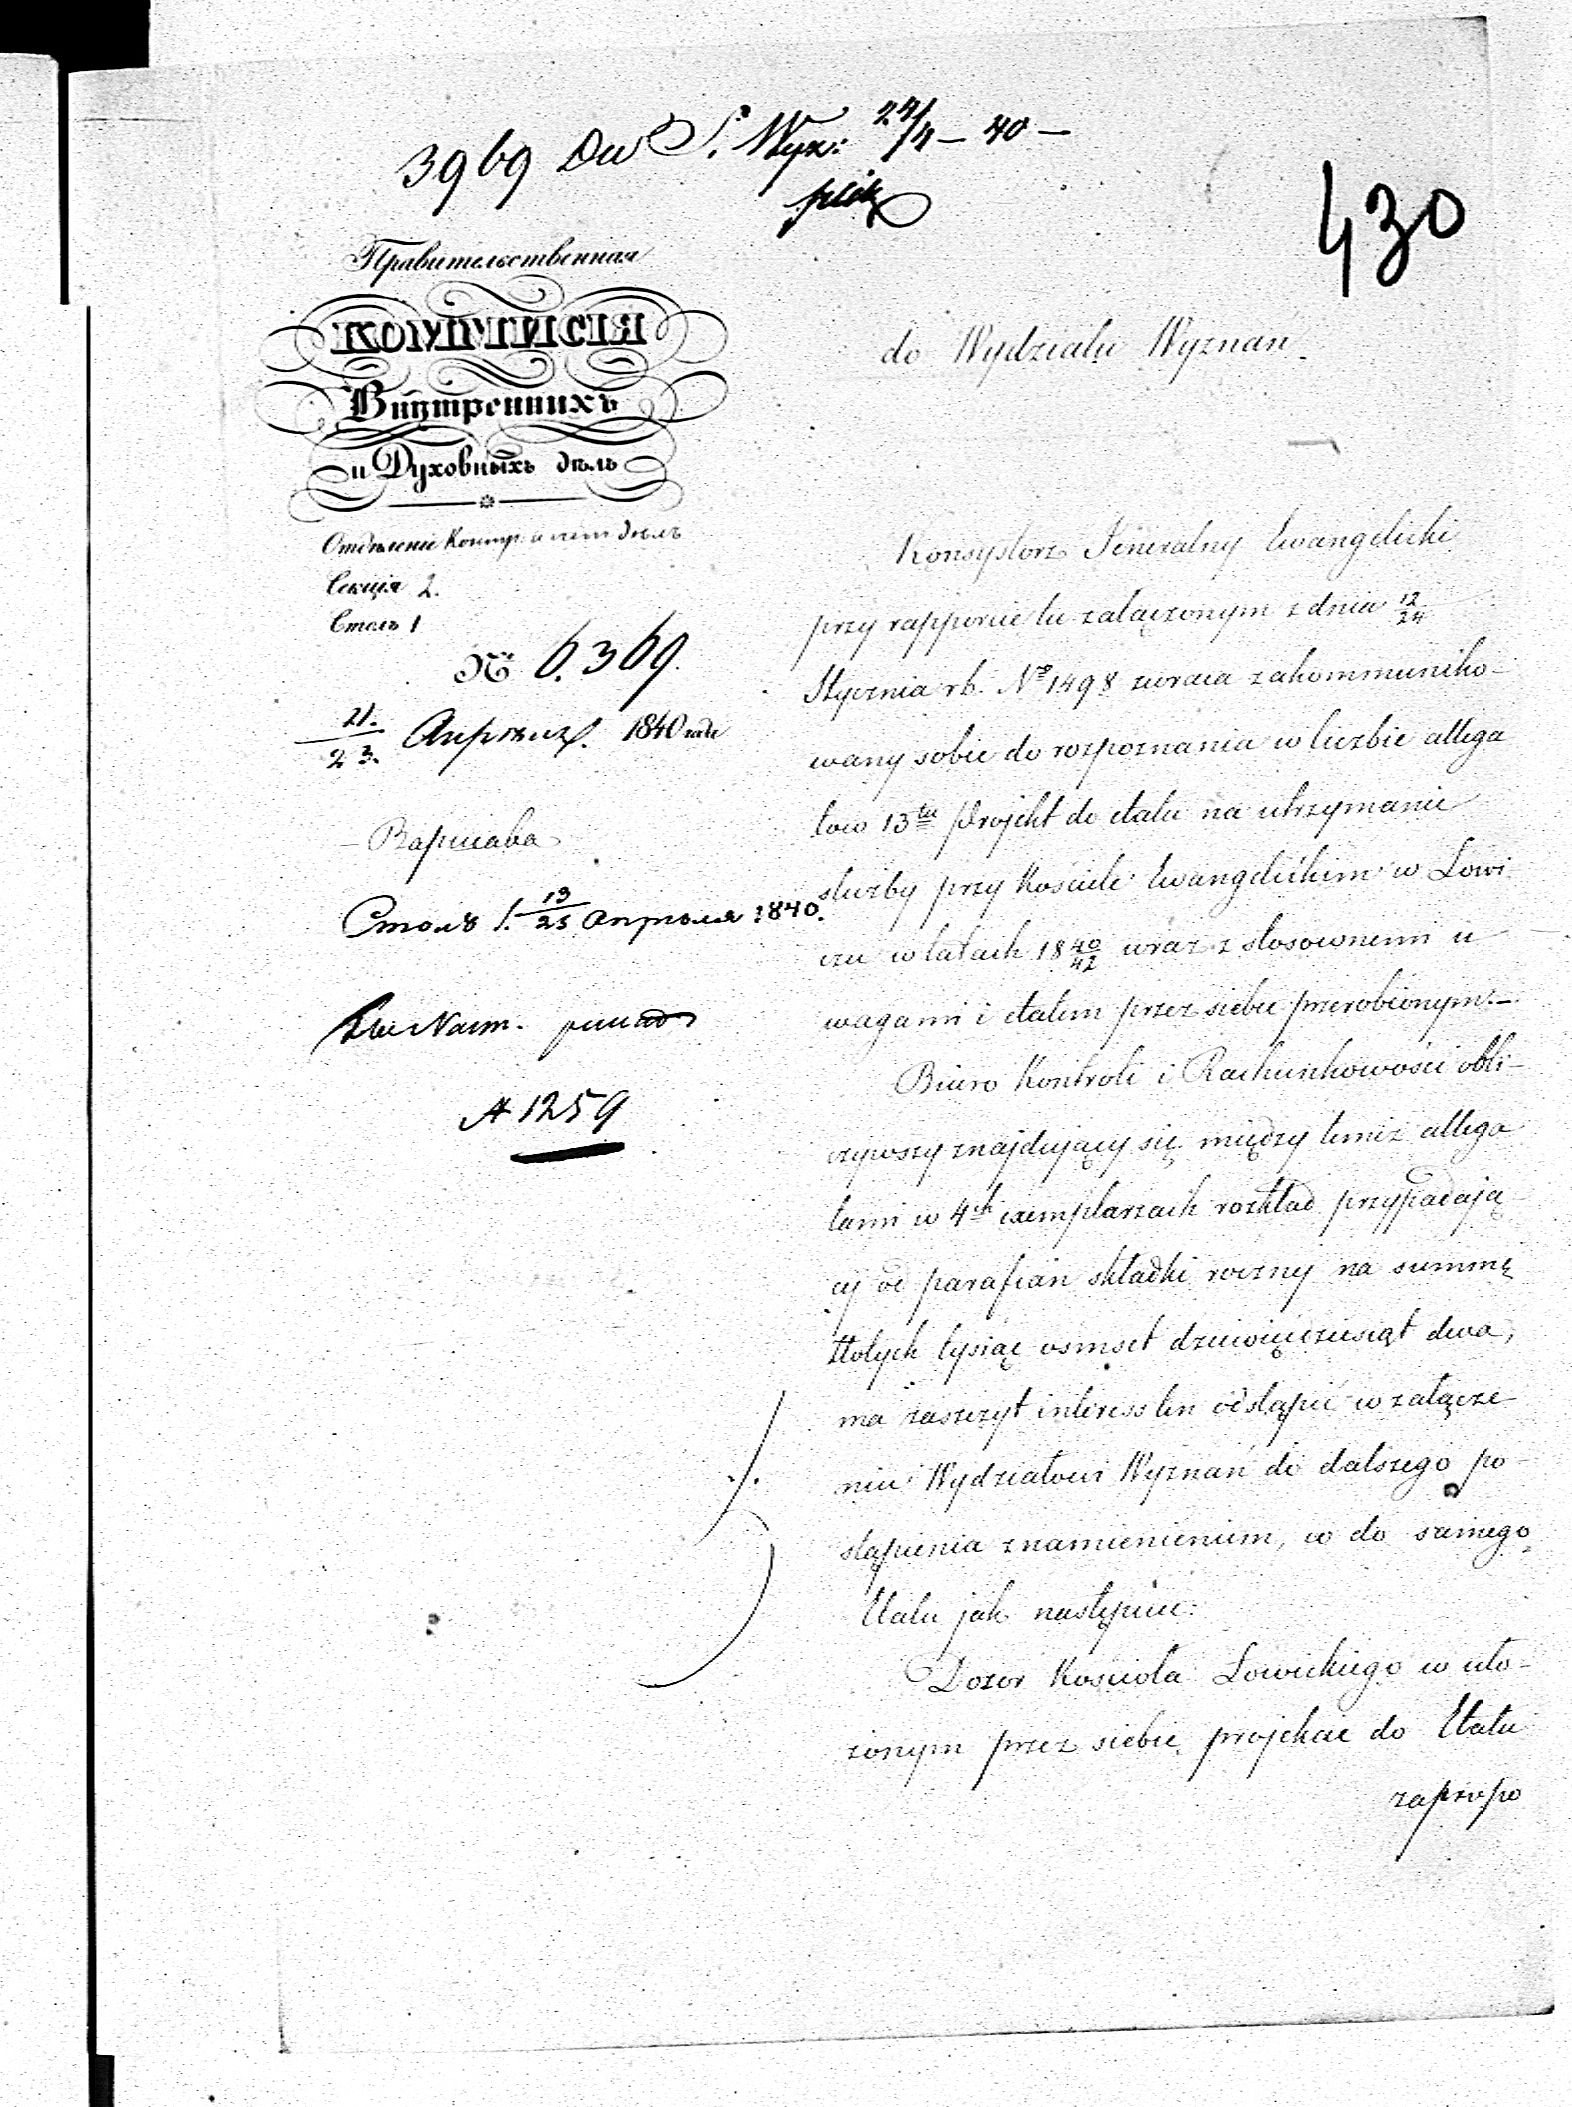 3969 Dw S. Wyz: 24/4 – 40 –
430
Правительственная
КОММИСІЯ
Внутреннихъ
и Духовныхъ дѣлъ
Отдѣленіе Контр. и счет. дѣлъ
Секція 2.
Столъ 1
№ 6.369.
21./23. Апрѣля. 1840 года
Варшава
Столъ 1. 13/25 Апрѣля 1840.
A 1259
do Wydziału Wyznań.
Konsystorz Jeneralny Ewangelicki
przy rapporcie tu załączonym z dnia 12/24
Stycznia r.b. No 1498 zwraca zakommuniko-
wany sobie do rozpoznania w liczbie allega
tów 13tu projekt do etatu na utrzymanie
służby przy Kościele Ewangelickim w Łowi
czu w latach 18 40/42 wraz z stosownemi u
wagami i etatem przez siebie przerobionym.–
Biuro Kontroli i Rachunkowości obli-
czywszy znajdujący się między temiż allega
tami w 4ch exemplarzach rozkład przypadają
cej od parafian składki roczney na summę
złotych tysiąc osmset dziewięćdziesiąt dwa,
ma zaszczyt interess ten odstąpić w załącze-
niu Wydziałowi Wyznań do dalszego po-
stąpienia z namienieniem, co do samego
Etatu jak następuie:
Dozor Kościoła Łowickiego w uło-
żonym przez siebie projekcie do Etatu
zapropo